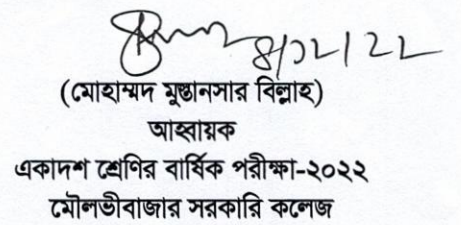 ৪/১২/২২
(মোহাম্মদ মুন্তানসার বিল্লাহ)
আহবায়ক
একাদশ শ্রেণির বার্ষিক পরীক্ষা-২০২২
মৌলভীবাজার সরকারি কলেজ